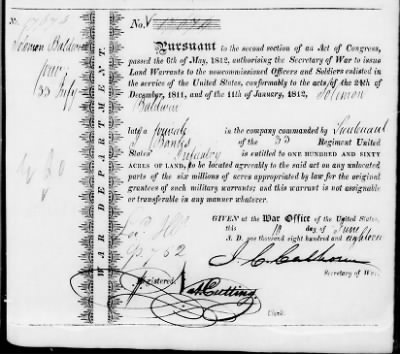 No.
Solomon Baldwin
33 Infy
WAR DEPARTMENT.
Pursuant to the second section of an Act of Congress,
passed the 6th of May, 1812, authorising the Secretary of War to issue
Land Warrants to the noncommissioned Officers and Soldiers enlisted in
the service of the United States, conformably to the acts of the 24th of
December, 1811, and of the 11th of January, 1812, Solomon
Baldwin
late a private in the company commanded by Lieutenant
Banks of the 33 Regiment United
States' Infantry is entitled to ONE HUNDRED AND SIXTY
ACRES OF LAND, to be located agreeably to the said act on any unlocated
parts of the six millions of acres appropriated by law for the original
grantees of such military warrants; and this warrant is not assignable
or transferable in any manner whatever.
GIVEN at the War Office of the United States,
this 10 day of June
A. D. one thousand eight hundred and eighteen
J. C. Calhoun
Secretary of War.
Registered.
Nat. Cutting.
Clerk.